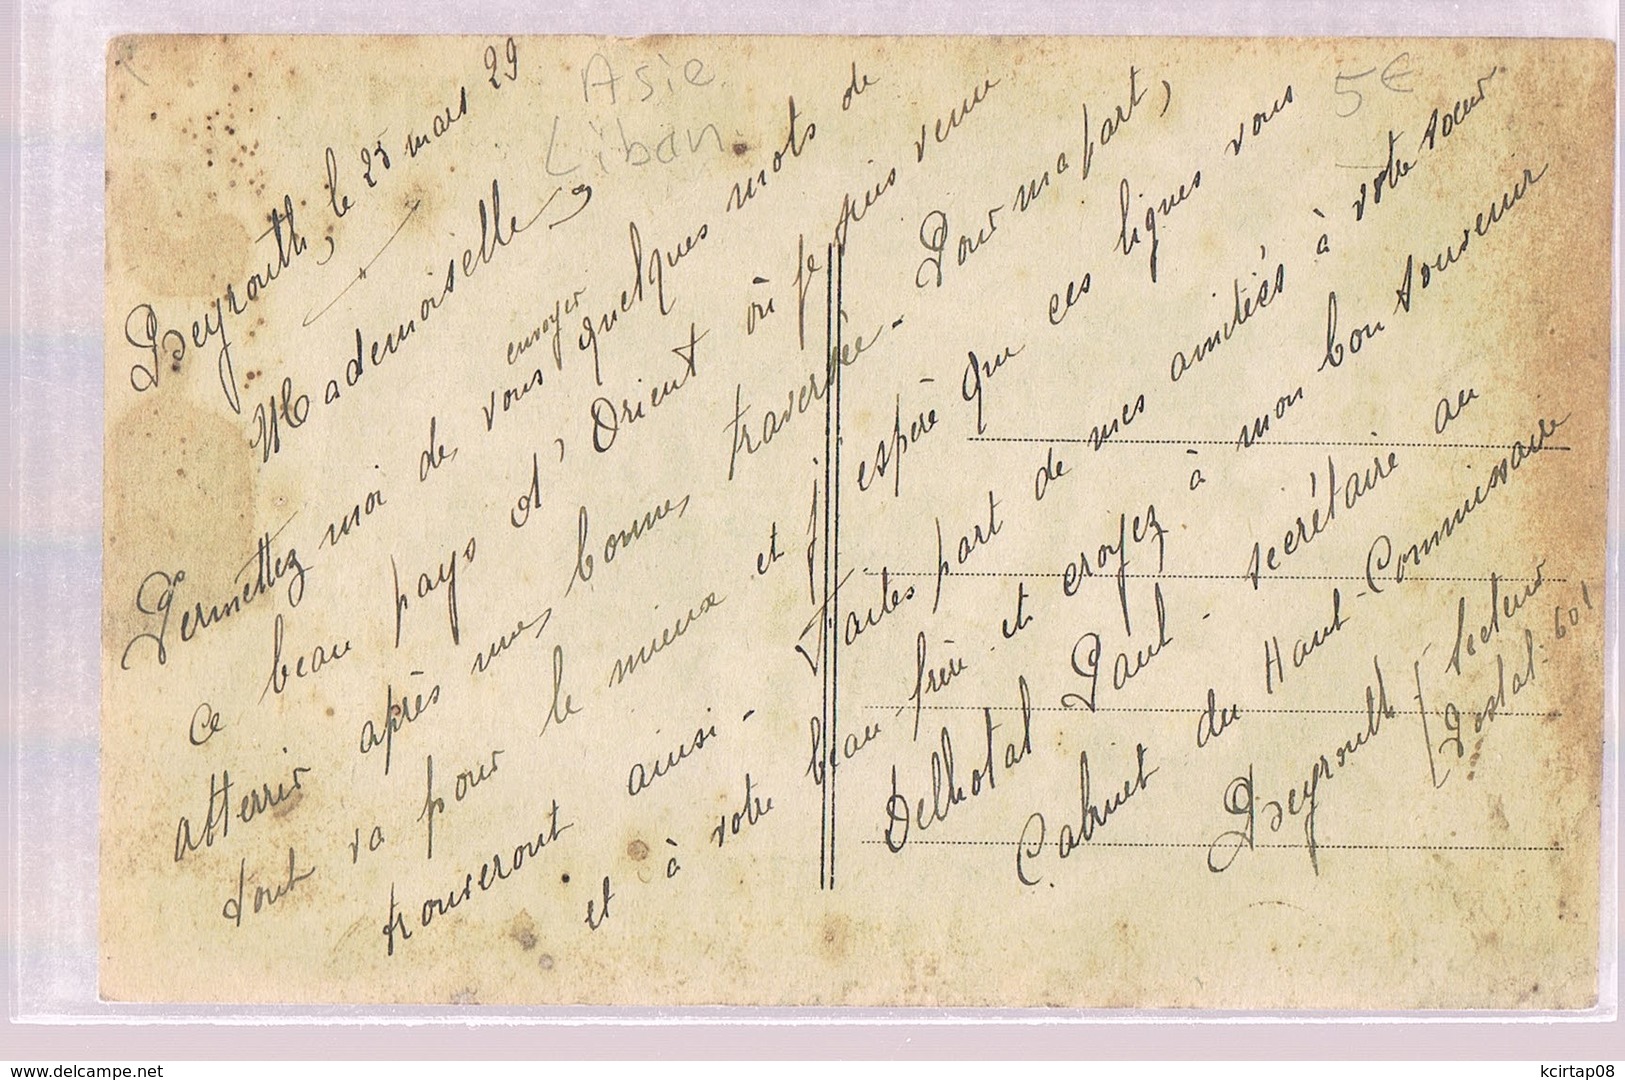 Asie
Liban
5€
Beyrouth, le 25 mars 29
Mademoiselle,
Permettez moi de vous envoyer quelques mots de
ce beau pays d'Orient où je suis venu
atterrir après une bonne traversée - Pour ma part,
tout va pour le mieux et j'espère que ces lignes vous
trouveront ainsi - Faites part de mes amitiés à votre soeur
et à votre beau-frère et croyez à mon bon souvenir
Delhotal Paul - secrétaire au
Cabinet du Haut-Commissaire
Beyrouth
Secteur
Postal: 601
www.delcampe.net
kcirtap08